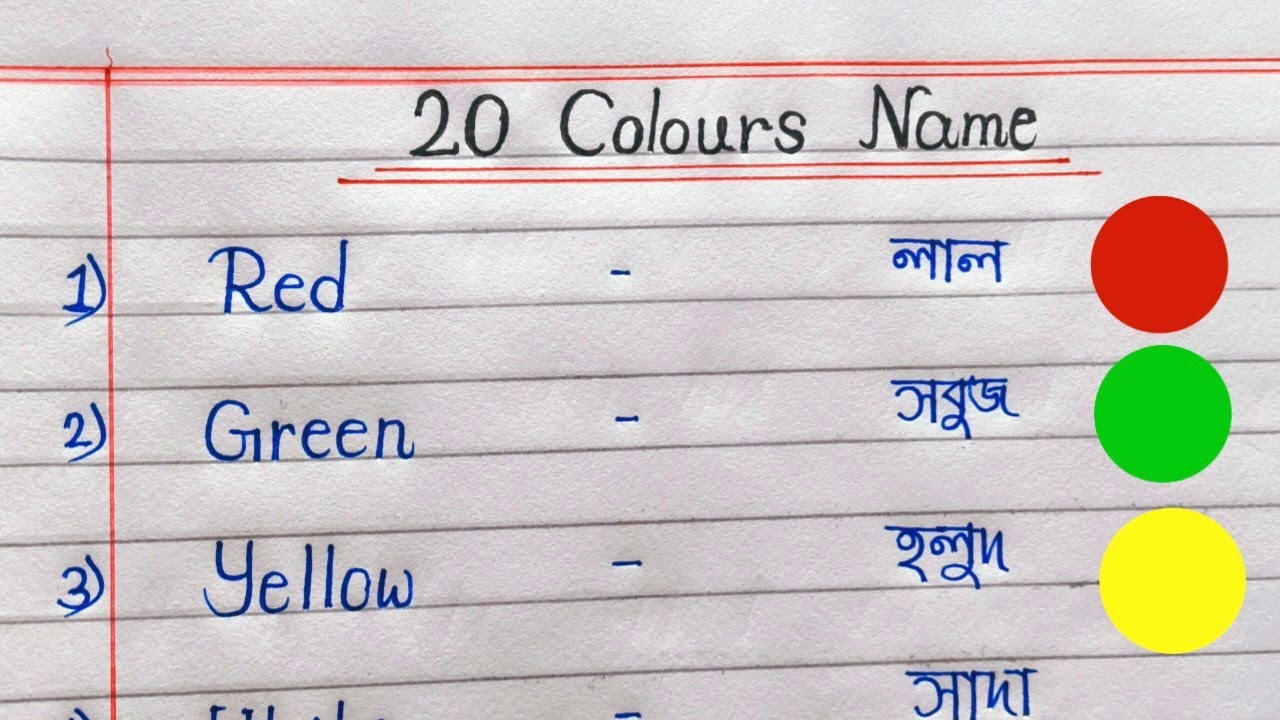 20 Colours Name
1) Red - লাল
2) Green - সবুজ
3) Yellow - হলুদ
- সাদা